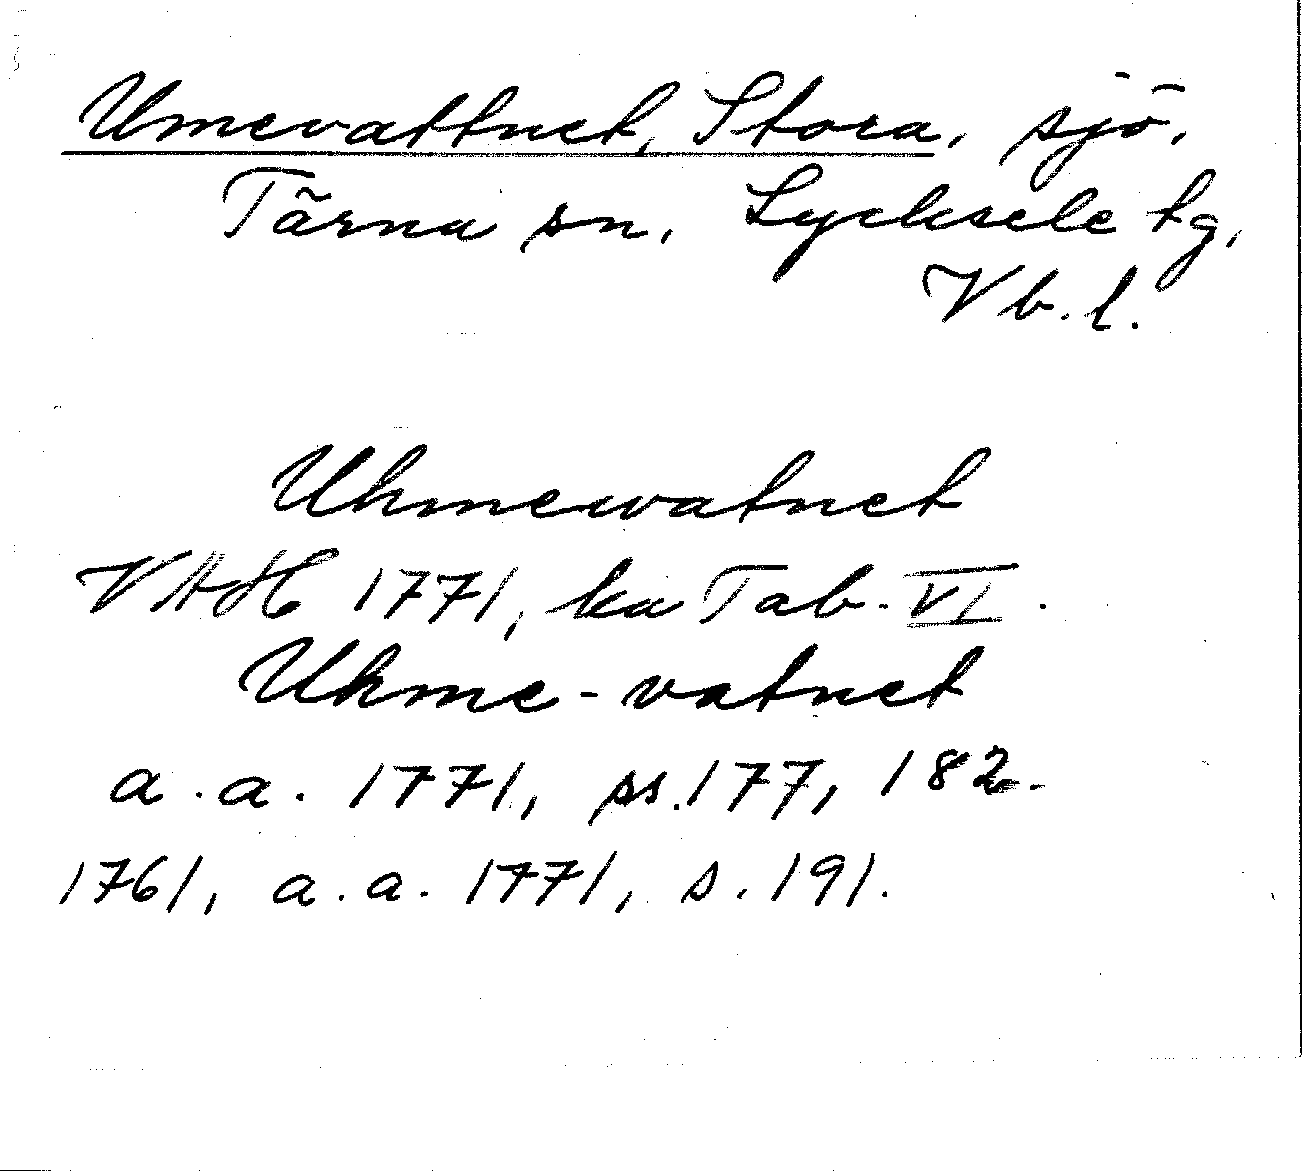 Umevattnet, Stora, sjö,
Tärna sn, Lycksele tg,
Vb. l.
Uhmewatnet
VAH 1771, ka Tab. VI.
Uhme-vatnet
a. a. 1771, ss. 177, 182.
1761, a. a. 1771, s. 191.